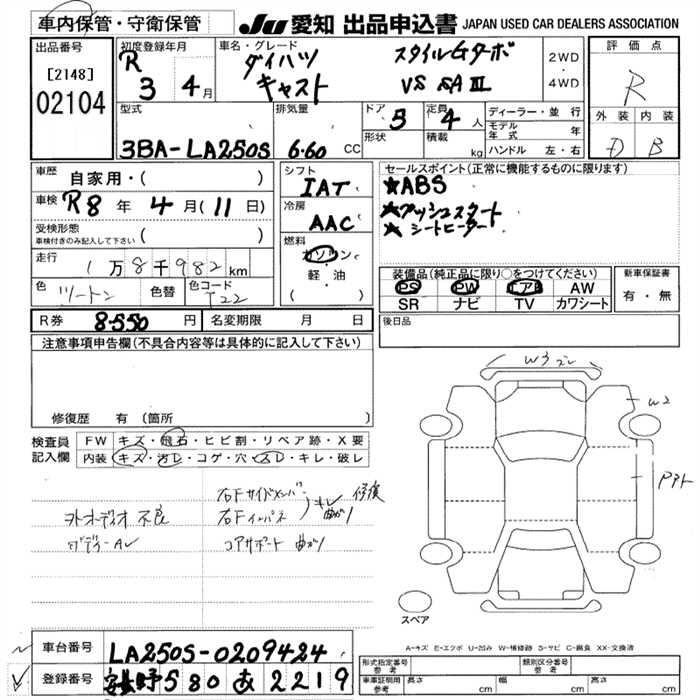 車内保管・守衛保管
JU 愛知 出品申込書 JAPAN USED CAR DEALERS ASSOCIATION
出品番号
[2148]
02104
初度登録年月
R 3 4月
車名・グレード
ダイハツ スタイルGターボ
キャスト VS SAⅢ
2WD
・
4WD
評価点
R
外装 内装
D B
型式
3BA-LA250S
排気量
6.60 CC
ドア
5
形状
定員
4人
積載
kg
ディーラー・並行
モデル年式 年
ハンドル 左・右
車歴
自家用・( )
車検 R8年 4月(11日)
受検形態
車検付きのみ記入して下さい ( )
走行 1万8千982km
色 ツートン 色替 色コード T22
シフト
IAT
冷房
AAC
燃料
ガソリン
・
軽・油
( )
セールスポイント(正常に機能するものに限ります)
★ABS
★プッシュスタート
★シートヒーター
装備品(純正品に限り○をつけてください)
PS PW エアB AW
SR ナビ TV カワシート
新車保証書
有・無
R券 8.550円 名変期限 月 日
後日品
注意事項申告欄(不具合内容等は具体的に記入して下さい)
修復歴 有(箇所
検査員
記入欄
FW キズ・飛石・ヒビ割・リペア跡・X要
内装 キズ・汚レ・コゲ・穴・スレ・キレ・破レ
右Fサイドメンバー
右Fインパネ 曲がり 修復
オーディオ不良
コアサポート 曲がり
W3
W2
スペア
A-キズ E-エクボ U-凹み W-補修跡 S-サビ C-腐食 XX-交換済
車台番号 LA250S-0209424
登録番号 長野 580 あ 2219
形式指定番号
参考
類別区分番号
参考
車庫証明用
参考
長さ cm 幅 cm 高さ cm